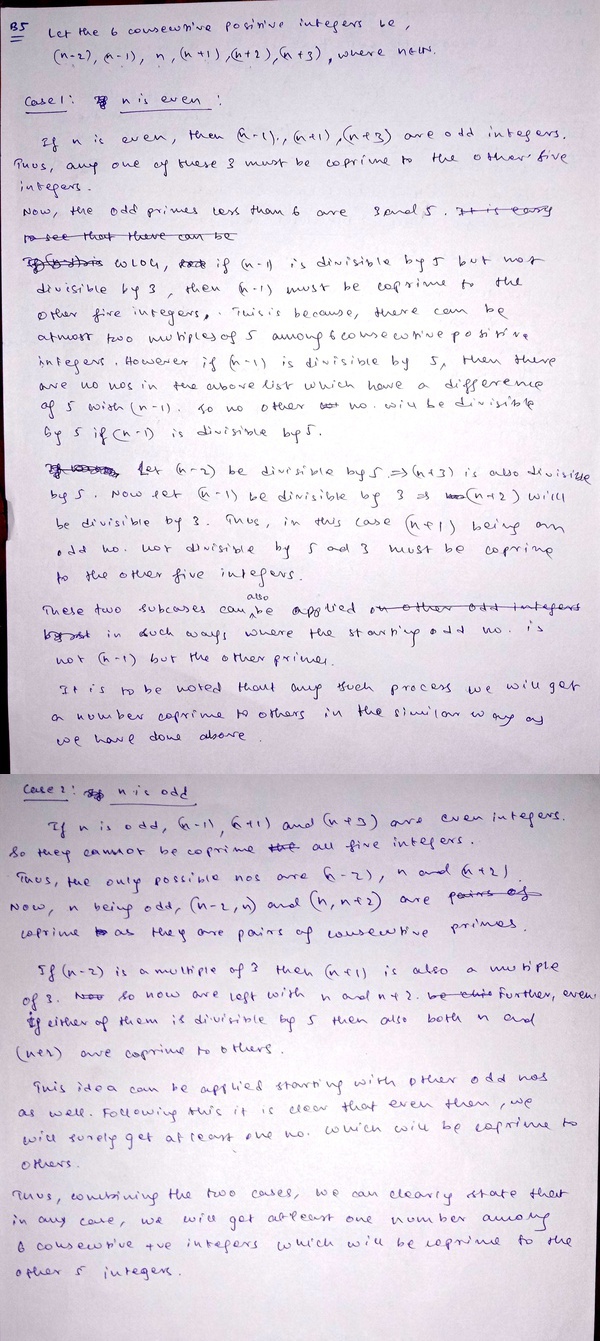 B5 Let the 6 consecutive positive integers be,
(n-2), (n-1), n, (n+1), (n+2), (n+3), where n∈IN.
Case 1: n is even:
If n is even, then (n-1), (n+1), (n+3) are odd integers.
Thus, any one of these 3 must be coprime to the other five
integers.
Now, the odd primes less than 6 are 3 and 5. It is easy
to see that there can be
WLOG, if (n-1) is divisible by 5 but not
divisible by 3, then (n-1) must be coprime to the
other five integers. This is because, there can be
atmost two multiples of 5 among 6 consecutive positive
integers. However if (n-1) is divisible by 5, then there
are no nos in the above list which have a difference
of 5 with (n-1). So no other no. will be divisible
by 5 if (n-1) is divisible by 5.
Let (n-2) be divisible by 5 ⇒ (n+3) is also divisible
by 5. Now let (n-1) be divisible by 3 ⇒ (n+2) will
be divisible by 3. Thus, in this case (n+1) being an
odd no. not divisible by 5 ad 3 must be coprime
to the other five integers.
These two subcases can also be applied on other odd integers
in such ways where the starting odd no. is
not (n-1) but the other primes.
It is to be noted that any such process we will get
a number coprime to others in the similar way as
we have done above.
Case 2: n is odd
If n is odd, (n-1), (n+1) and (n+3) are even integers.
So they cannot be coprime all five integers.
Thus, the only possible nos are (n-2), n and (n+2).
Now, n being odd, (n-2, n) and (n, n+2) are pairs of
coprime as they are pairs of consecutive primes.
If (n-2) is a multiple of 3 then (n+1) is also a multiple
of 3. So now are left with n and n+2. Further, even
if either of them is divisible by 5 then also both n and
(n+2) are coprime to others.
This idea can be applied starting with other odd nos
as well. Following this it is clear that even then, we
will surely get at least one no. which will be coprime to
others.
Thus, combining the two cases, we can clearly state that
in any case, we will get atleast one number among
6 consecutive +ve integers which will be coprime to the
other 5 integers.